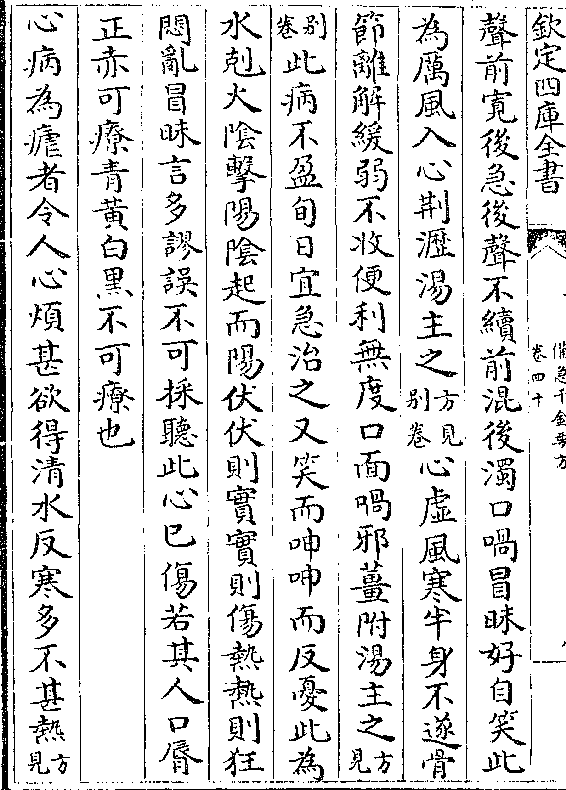 欽定四庫全書
備急千金要方
卷四十
聲前寛後急後聲不續前混後濁口喎冒昧好自笑此
為厲風入心荆瀝湯主之方見别卷心虛風寒半身不遂骨
節離解緩弱不收便利無度口面喎邪薑附湯主之方見
别卷此病不盈旬日宜急治之又笑而呻呻而反憂此為
水剋火陰擊陽陰起而陽伏伏則實實則傷熱熱則狂
悶亂冒昧言多謬誤不可採聽此心已傷若其人口脣
正赤可療青黄白黒不可療也
心病為瘧者令人心煩甚欲得清水反寒多不甚熱方見